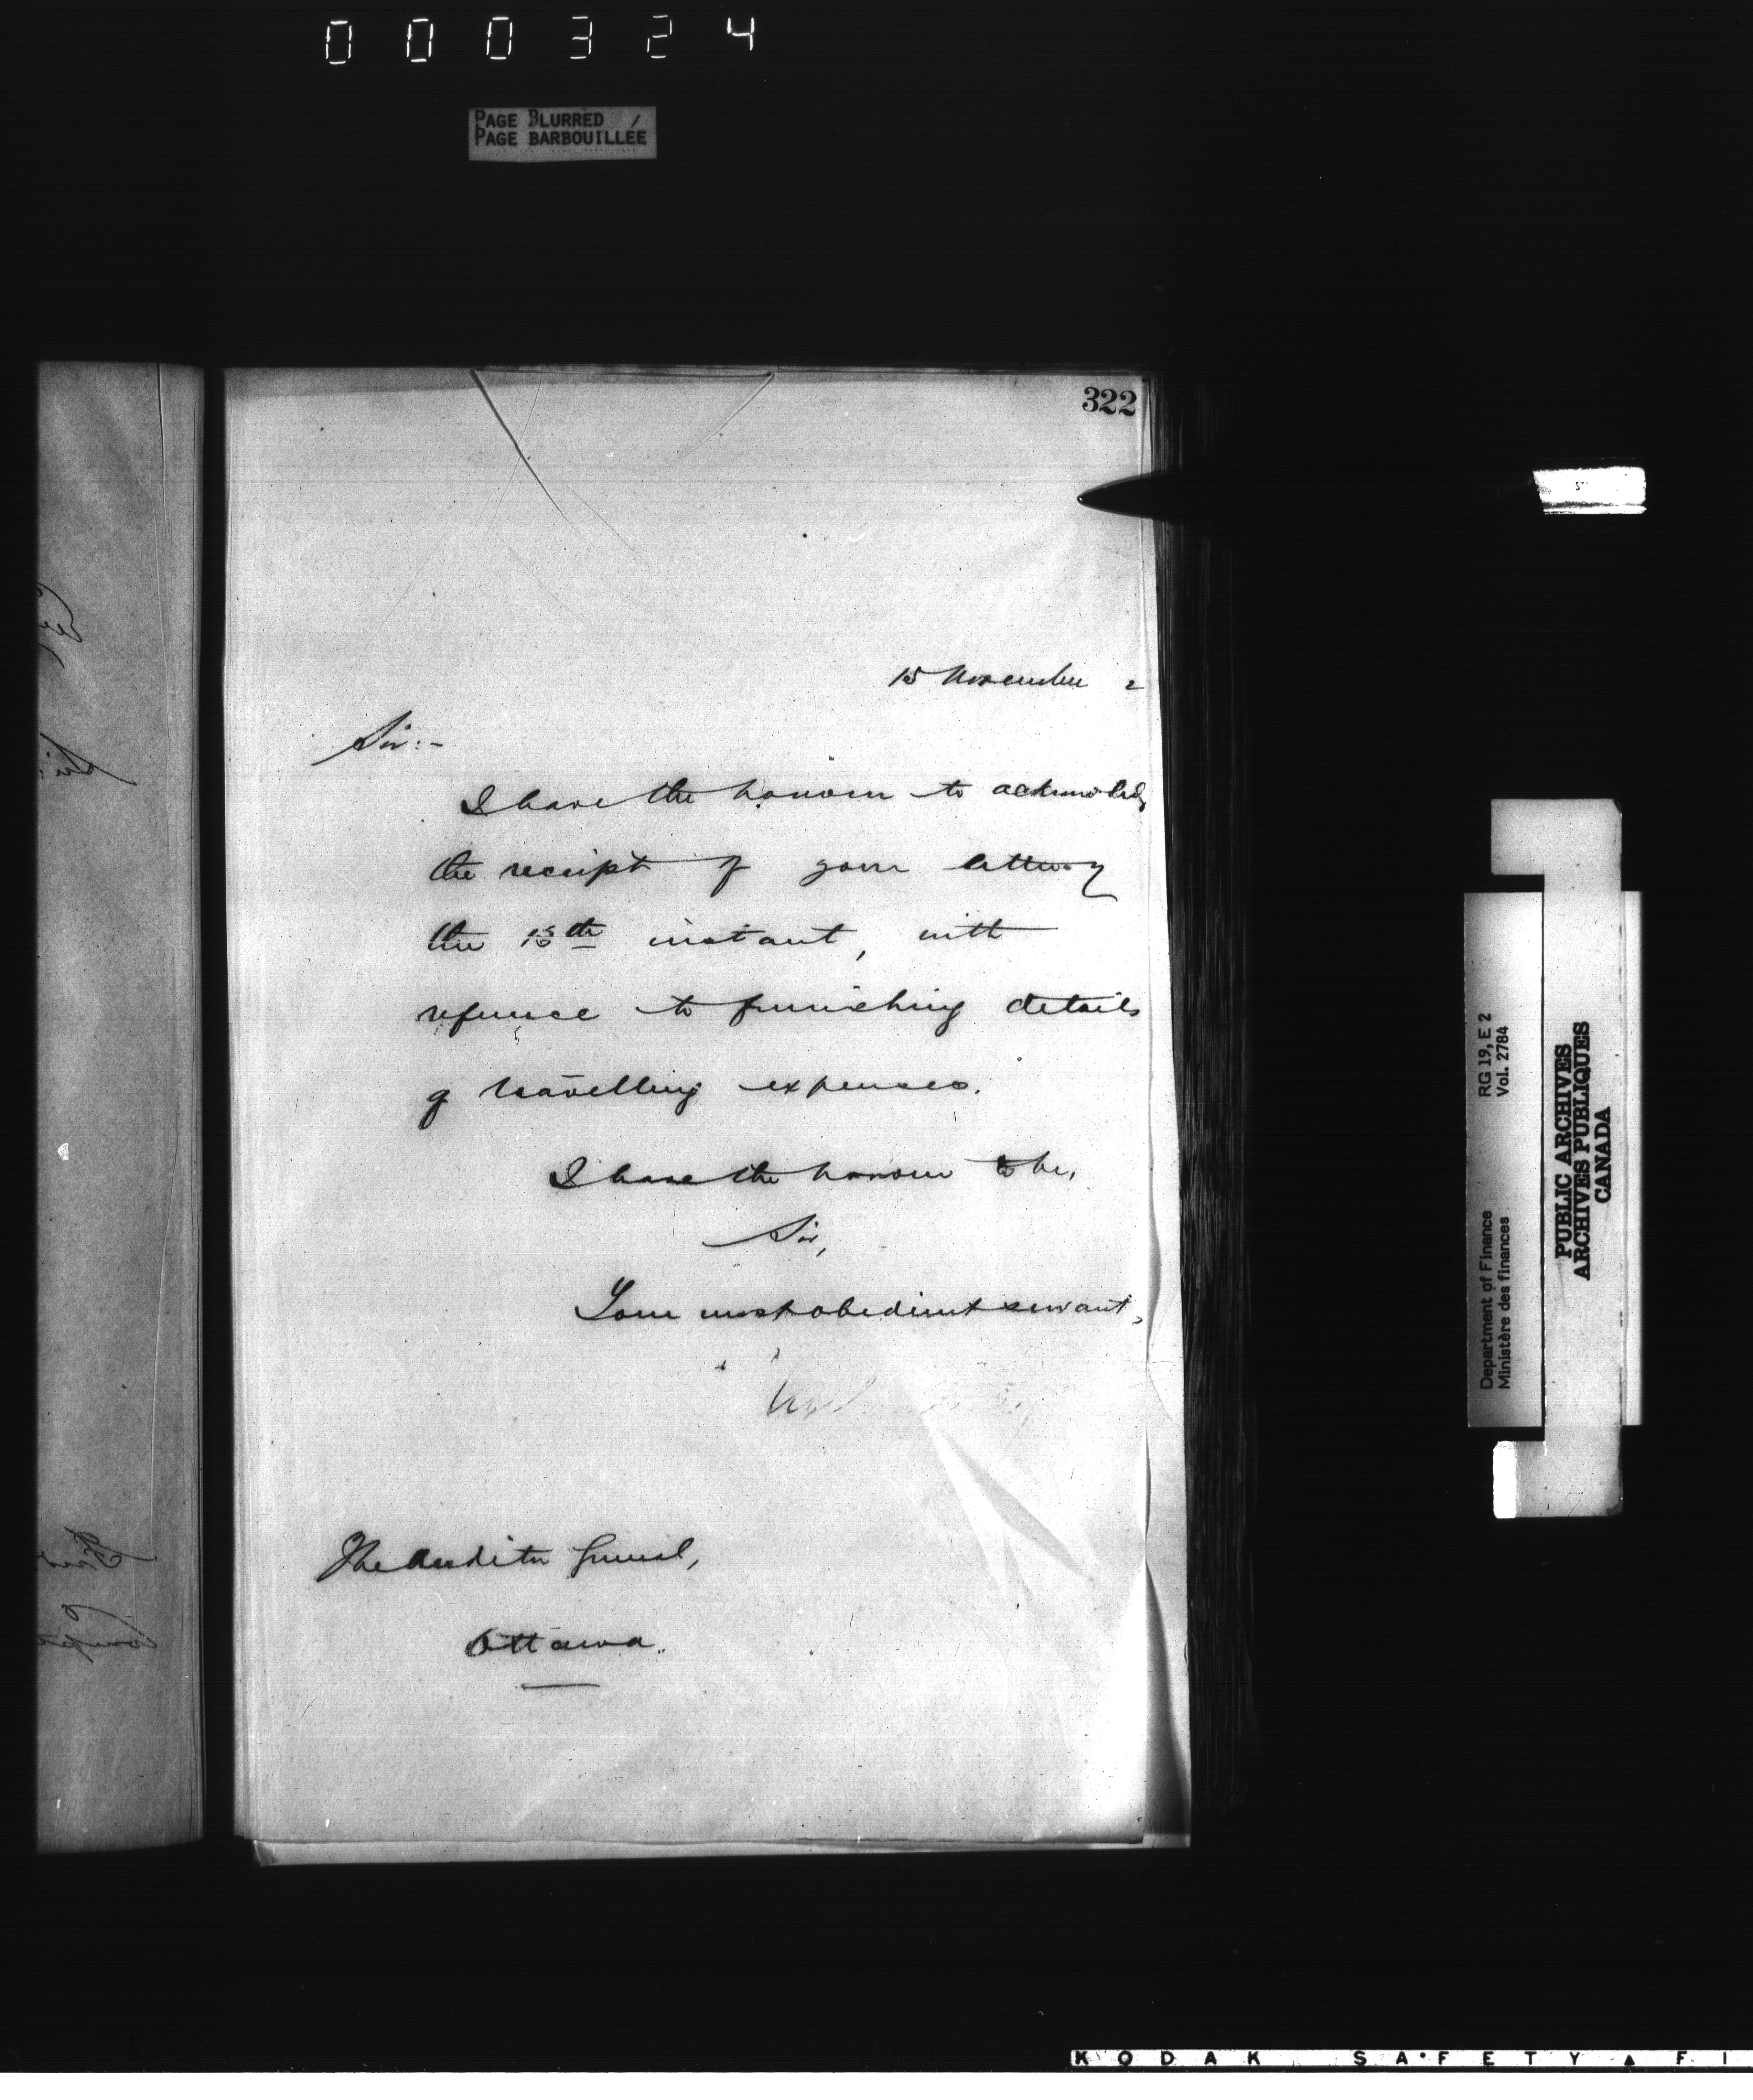 000324
PAGE BLURRED
PAGE BARBOUILLÉE
322
15 November 2
Sir:-
I have the honour to acknowledg
the receipt of your letter of
the 15th instant, with
reference to furnishing details
of travelling expenses.
I have the honour to be,
Sir,
Your most obedient servant,
The Auditor General,
Ottawa.
RG 19, E 2
Vol. 2784
Department of Finance
Ministère des finances
PUBLIC ARCHIVES
ARCHIVES PUBLIQUES
CANADA
KODAK SAFETY FI